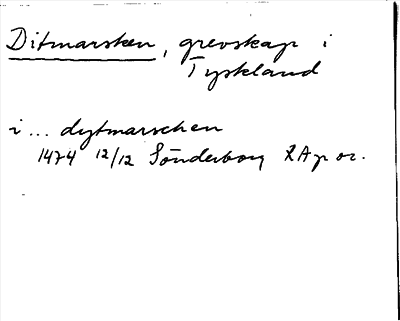 Ditmarsken, grevskap i
Tyskland
i... dytmarschen
1474 12/12 Sönderborg RAp or.